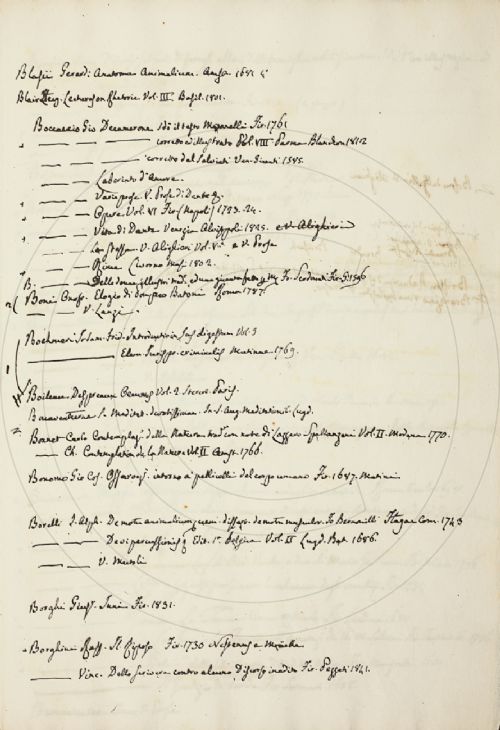 Blasii Gerardi Anatome Animalium. Amst. 1681. 4°
Blair Lectures on Rhetoric Vol. III. Basil. 1801.
Boccaccio Gio Decamerone Fir. 1761
— — — corretto ed illustrato Vol. VIII Parma Blanchon 1812
— — — corretto dal Salviati Ven. Giunti 1585.
— — Laberinto d'Amore.
— — Varie prose V. Prose di Dante
— — Opere Vol. VI Fir. (Napoli) 1723. 24.
— — Vita di Dante Venezia Alvisopoli 1825. e V. Alighieri
— — V. Alighieri Vol. V. e V. Prose
— — Rime Livorno Masi 1802.
B. — — Delle donne illustri Fir. 1596
Boni Onof. Elogio di Pompeo Batoni Roma 1787.
— V. Lanzi
Boehmer Introductio in Jus digestorum Vol. 2
— Elem. Jurispr. criminalis Mutinae 1769.
Boileau Despreaux Oeuvres Vol. 2 Paris.
Bonaventurae S. Meditat. devotissimae S. Aug. Meditation. Lugd.
2 Bonnet Carlo Contemplaz. della Natura trad. con note di Lazzaro Spallanzani Vol. II. Modena 1770.
— Ch. Contemplation de la Nature Vol. II Amst. 1766.
Bonomo Gio Cos. Osservaz. intorno a' pellicelli del corpo umano Fir. 1687. Matini
Borelli J. Alph. De motu animalium, Jo. Bernoulli Hagae Com. 1743
— — De vi percussionis Edit. 1ª Belgica Vol. II Lugd. Bat. 1686
— — V.
Borghi Gius. Inni Fir. 1831.
Borghini Raff. Il Riposo Fir. 1730 Nestenus e Moücke
— — Vinc. Dello scrivere contro alcuno, Discorso inedito Fir. Pezzati 1841.